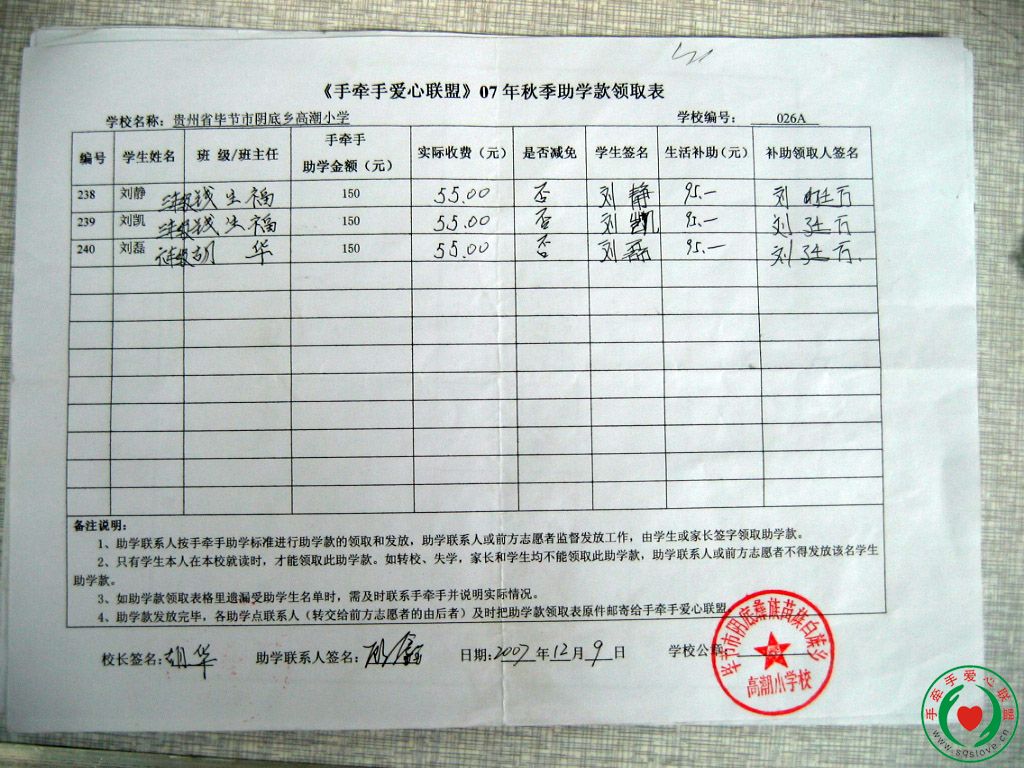 《手牵手爱心联盟》07年秋季助学款领取表
学校名称：贵州省毕节市阴底乡高潮小学 学校编号：026A
编号 学生姓名 班 级/班主任 手牵手助学金额（元） 实际收费（元） 是否减免 学生签名 生活补助（元） 补助领取人签名
238 刘静 钱生福 150 55.00 否 刘静 95.—
239 刘凯 钱生福 150 55.00 否 刘凯 95.—
240 刘磊 胡华 150 55.00 否 刘磊 95.—
备注说明：
1、助学联系人按手牵手助学标准进行助学款的领取和发放，助学联系人或前方志愿者监督发放工作，由学生或家长签字领取助学款。
2、只有学生本人在本校就读时，才能领取此助学款。如转校、失学，家长和学生均不能领取此助学款，助学联系人或前方志愿者不得发放该名学生
助学款。
3、如助学款领取表格里遗漏受助学生名单时，需及时联系手牵手并说明实际情况。
4、助学款发放完毕，各助学点联系人（转交给前方志愿者的由后者）及时把助学款领取表原件邮寄给手牵手爱心联盟。
校长签名：胡华 助学联系人签名： 日期：2007年12月9日 学校公章：
毕节市阴底彝族苗族白族乡
高潮小学校
手牵手爱心联盟
www.sqslove.cn